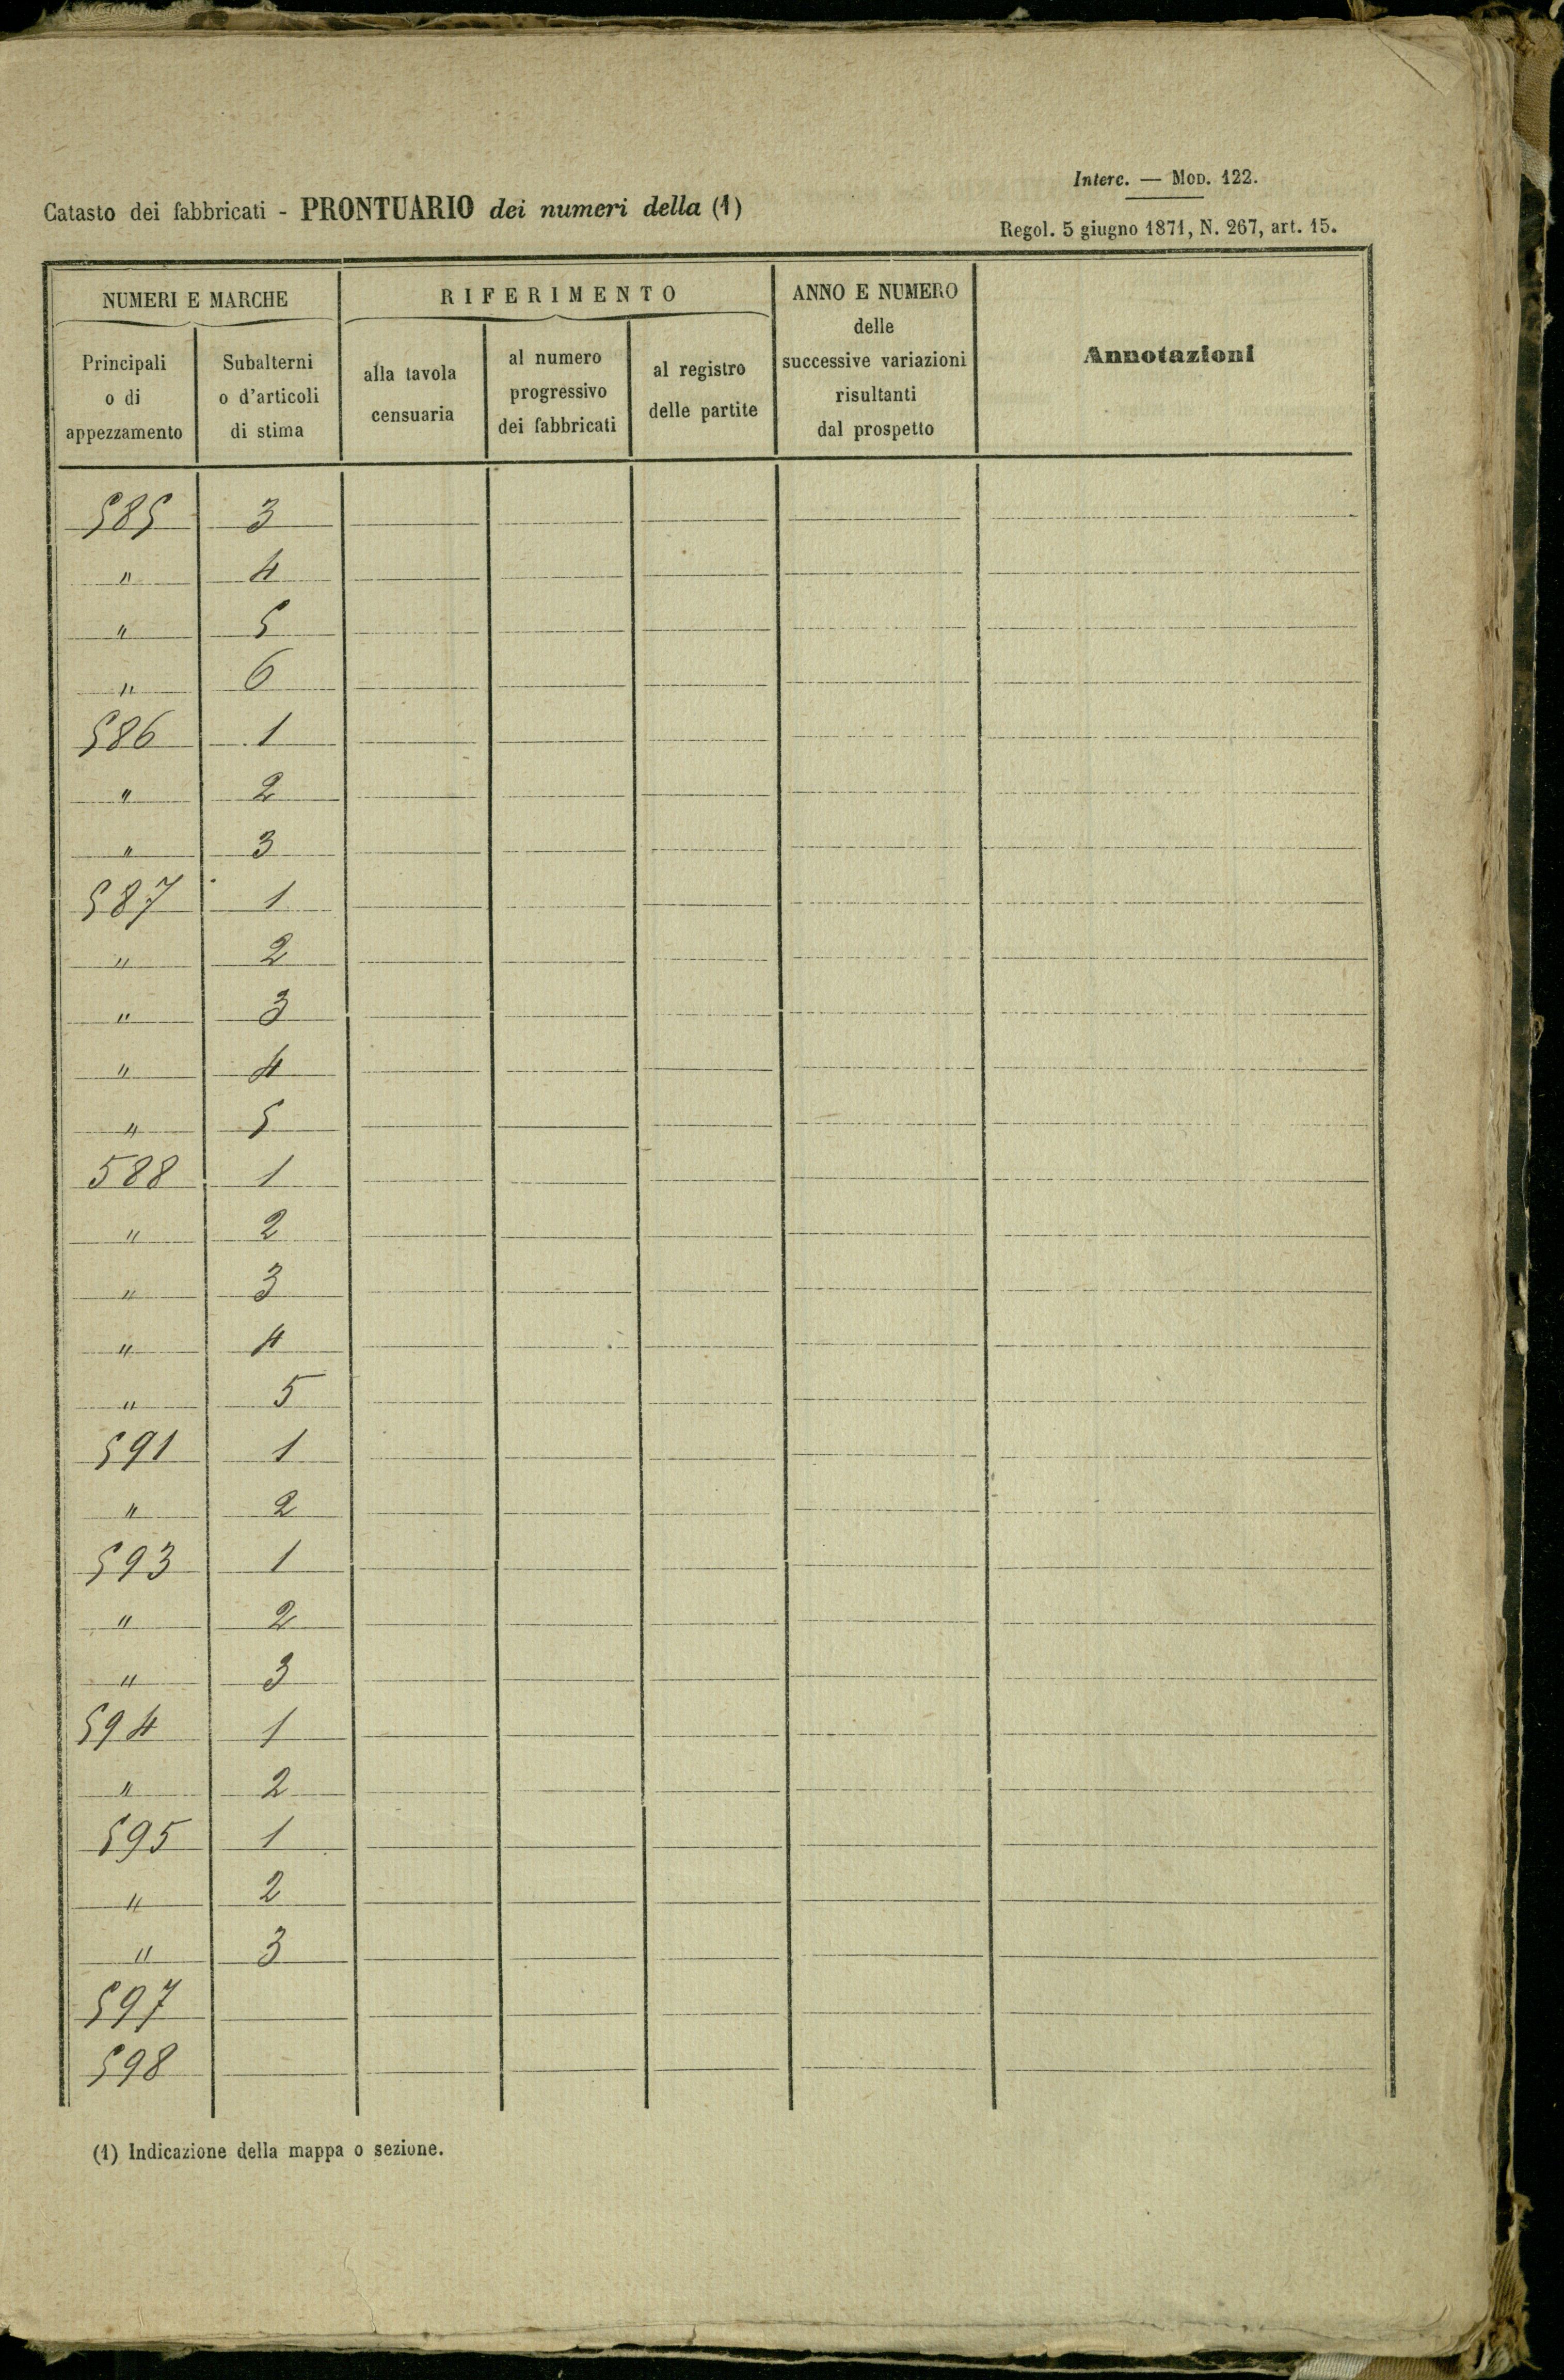 Interc. — MOD. 122.
Catasto dei fabbricati - PRONTUARIO dei numeri della (1)
Regol. 5 giugno 1871, N. 267, art. 15.
NUMERI E MARCHE
RIFERIMENTO
ANNO E NUMERO
delle
successive variazioni
risultanti
dal prospetto
Annotazioni
Principali
o di
appezzamento
Subalterni
o d'articoli
di stima
alla tavola
censuaria
al numero
progressivo
dei fabbricati
al registro
delle partite
585 3
" 4
" 5
" 6
586 1
" 2
" 3
587 1
" 2
" 3
" 4
" 5
588 1
" 2
" 3
" 4
" 5
591 1
" 2
593 1
" 2
" 3
594 1
" 2
595 1
" 2
" 3
597
598
(1) Indicazione della mappa o sezione.